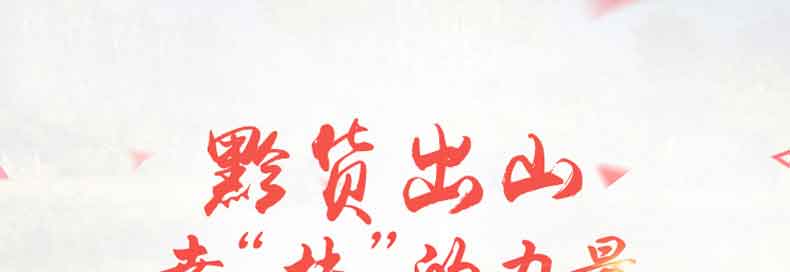 黔货出山
的力量